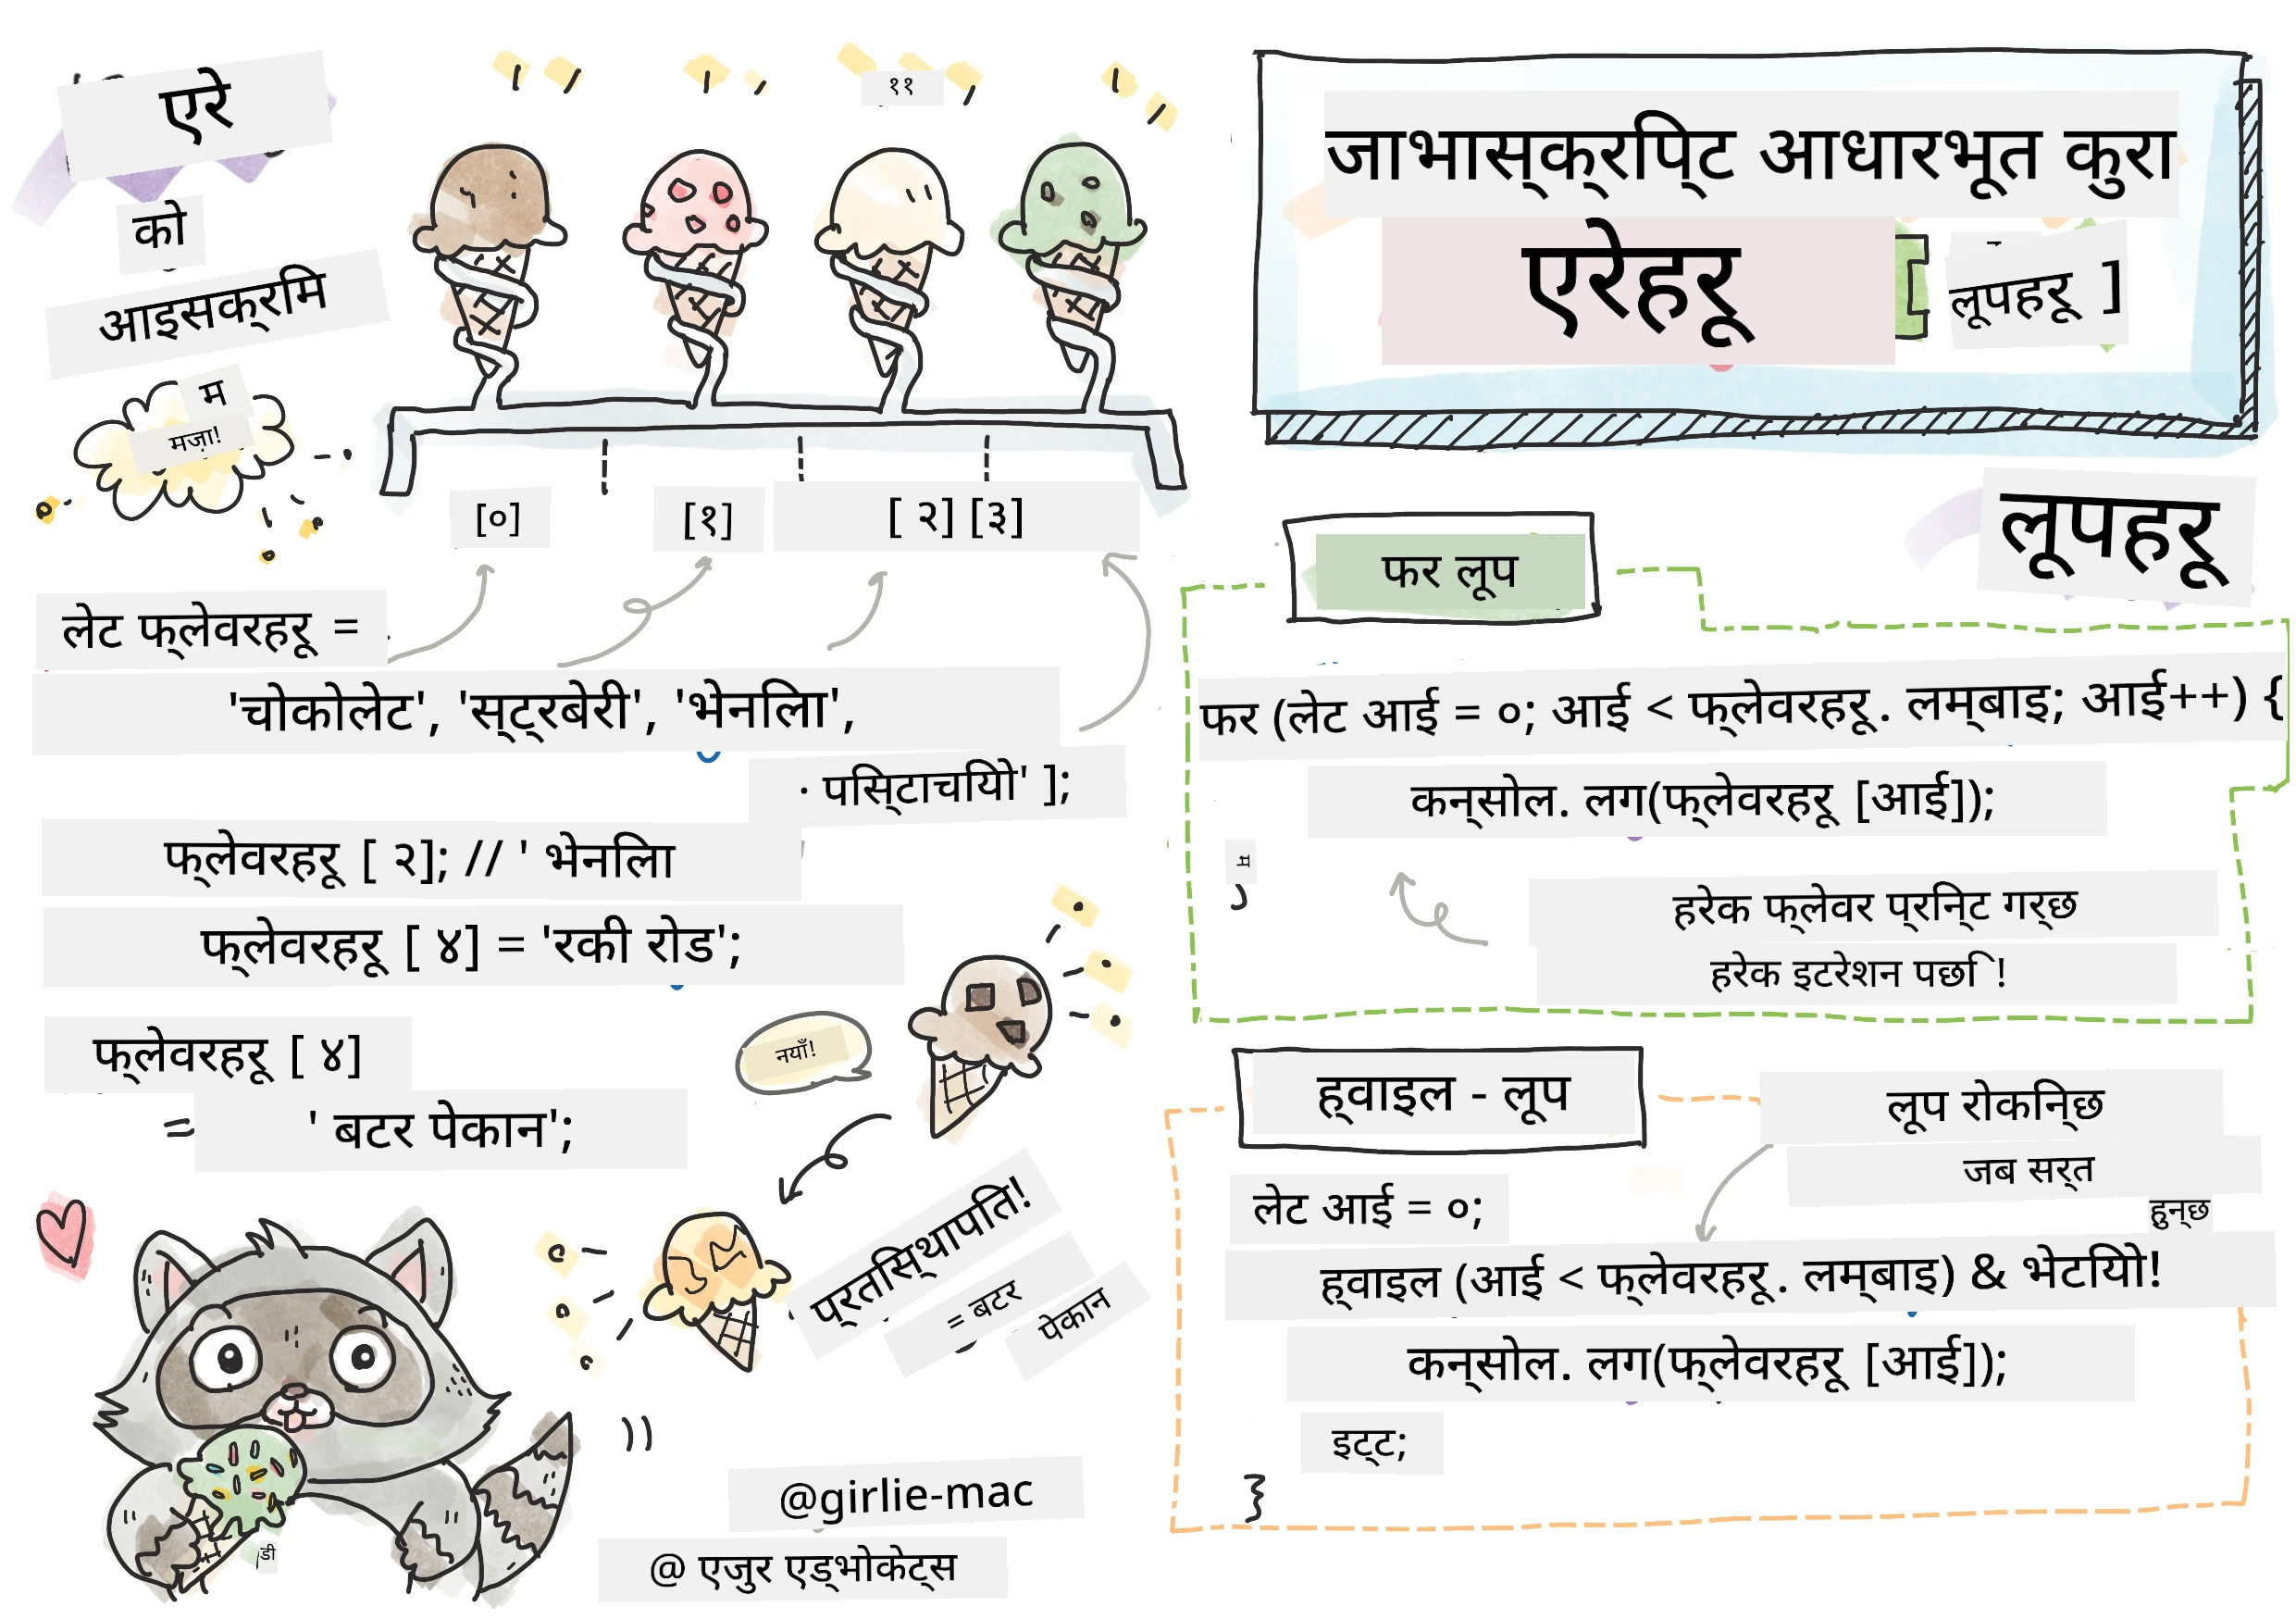 एरे
को
आइसक्रिम
म
मज़ा!
११
[०]
[१]
[ २] [३]
लेट फ्लेवरहरू =
'चोकोलेट', 'स्ट्रबेरी', 'भेनिला',
· पिस्टाचियो' ];
फ्लेवरहरू [ २]; // ' भेनिला
फ्लेवरहरू [ ४] = 'रकी रोड';
फ्लेवरहरू [ ४]
= ' बटर पेकान';
नयाँ!
प्रतिस्थापित!
= बटर
पेकान
डी
@girlie-mac
@ एजुर एड्भोकेट्स
जाभास्क्रिप्ट आधारभूत कुरा
एरेहरू
[ लूपहरू ]
लूपहरू
फर लूप
फर (लेट आई = ०; आई < फ्लेवरहरू. लम्बाइ; आई++) {
कन्सोल. लग(फ्लेवरहरू [आई]);
म
हरेक फ्लेवर प्रिन्ट गर्छ
हरेक इटरेशन पछि!
ह्वाइल - लूप
लूप रोकिन्छ
जब सर्त
हुन्छ
लेट आई = ०;
ह्वाइल (आई < फ्लेवरहरू. लम्बाइ) & भेटियो!
कन्सोल. लग(फ्लेवरहरू [आई]);
इट्ट;
}